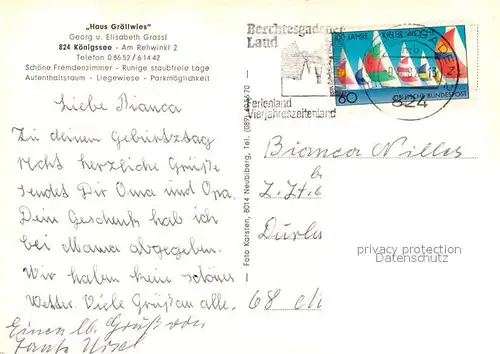 „Haus Gröllwies"
Georg u. Elisabeth Grassl
824 Königssee - Am Rehwinkl 2
Telefon 08652/61442
Schöne Fremdenzimmer - Ruhige staubfreie Lage
Aufenthaltsraum - Liegewiese - Parkmöglichkeit
Liebe Bianca
Zu deinem Geburtstag
recht herzliche Grüße
sendet Dir Oma und Opa.
Dein Geschenk hab ich
bei Mama abgegeben.
Wir haben kein schönes
Wetter. Viele Grüße an alle.
Einen lb. Gruß von
Tante
Foto Karsten, 8014 Neubiberg, Tel. (089)
Berchtesgadener
Land
Ferienland
Vierjahreszeitenland
100 JAHRE KIELER WOCHE
60
DEUTSCHE BUNDESPOST
824
Bianca Nilles
68
privacy protection
Datenschutz